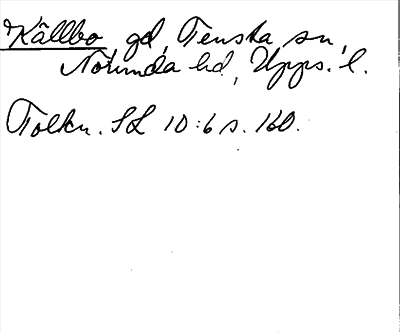 Källbo gd, Tenska sn,
Norunda hd, Upps. l.
Tolkn. SL 10:6 s. 160.